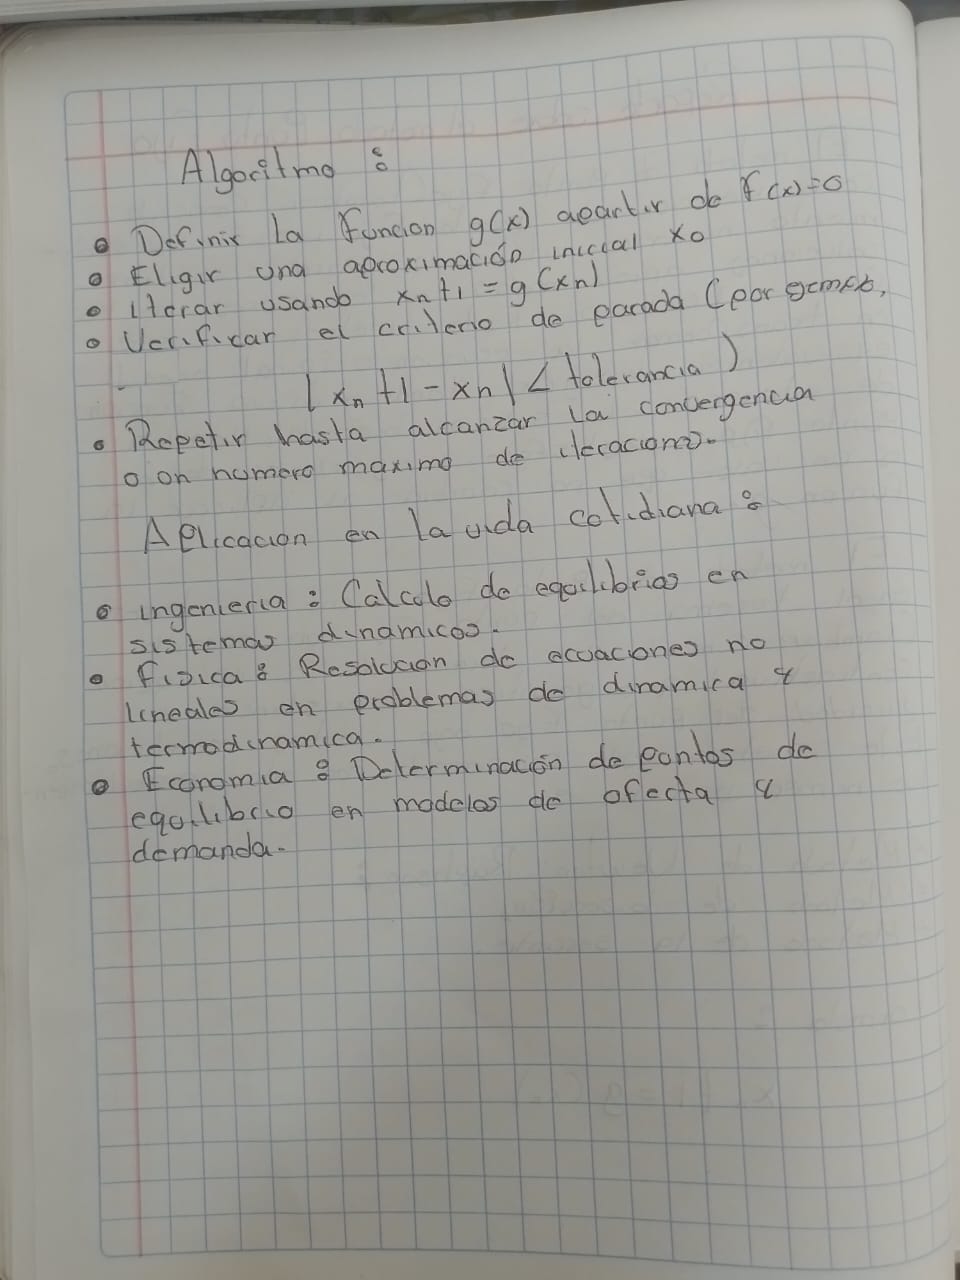 Algoritmo :
• Definir la Funcion g(x) apartir de F(x)=0
• Eligir una aproximación inicial x0
• Iterar usando xn+1 = g(xn)
• Verificar el criterio de parada (por
|xn+1 - xn| < tolerancia)
• Repetir hasta alcanzar la convergencia
o un numero maximo de iteraciones.
Aplicacion en la vida cotidiana :
• ingenieria : Calculo de equilibrios en
sistemas dinamicos.
• Fisica : Resolucion de ecuaciones no
lineales en problemas de dinamica y
termodinamica.
• Economia : Determinación de puntos de
equilibrio en modelos de oferta y
demanda.